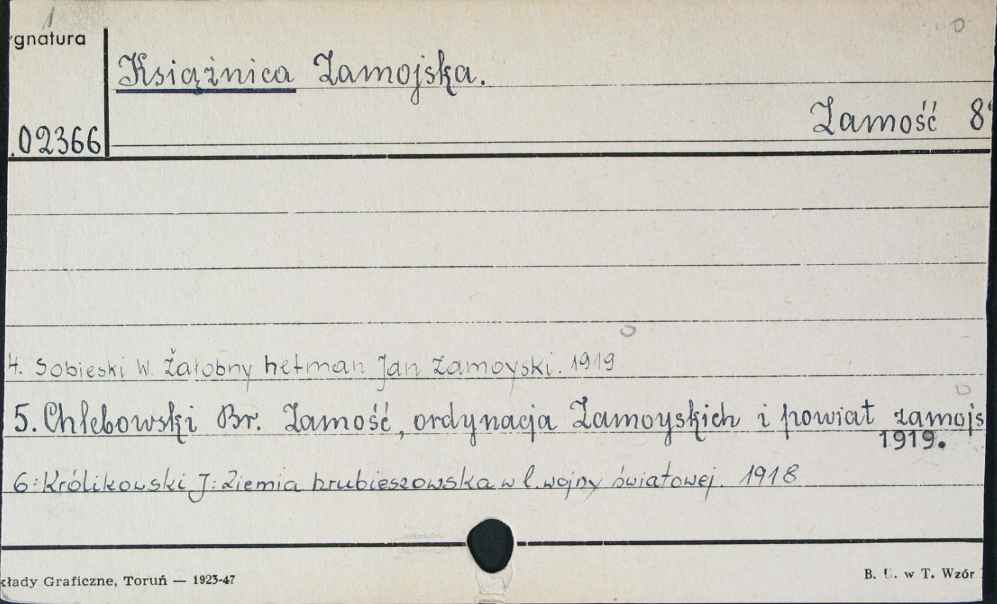 1
gnatura
Książnica Zamojska.
Zamość 8°
.02366
4. Sobieski W. Żałobny hetman Jan Zamoyski. 1919
5. Chlebowski Br. Zamość, ordynacja Zamoyskich i powiat zamojs
1919.
6: Królikowski J: Ziemia hrubieszowska w l. wojny światowej. 1918
kłady Graficzne, Toruń — 1923-47
B. U. w T. Wzór